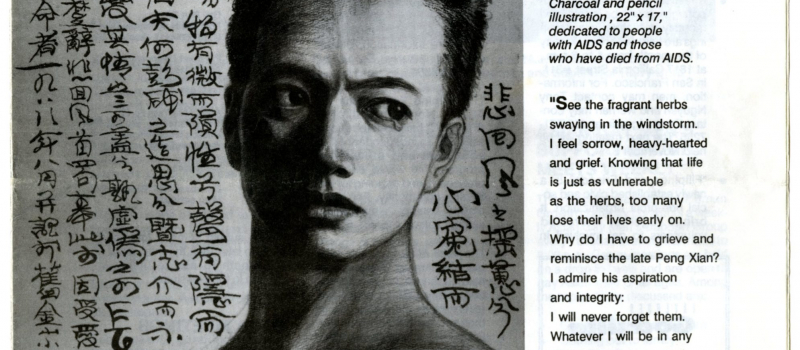 悲回風之搖蕙兮
心寃結而
物有微而隕性兮聲有隱而
何彭咸之造思兮暨志介而不
其情豈可蓋兮孰虛偽之可長
楚辭悲回風首
命者一九八八年八月并記於舊金山
Charcoal and pencil
illustration , 22" x 17,"
dedicated to people
with AIDS and those
who have died from AIDS.
"See the fragrant herbs
swaying in the windstorm.
I feel sorrow, heavy-hearted
and grief. Knowing that life
is just as vulnerable
as the herbs, too many
lose their lives early on.
Why do I have to grieve and
reminisce the late Peng Xian?
I admire his aspiration
and integrity:
I will never forget them.
Whatever I will be in any